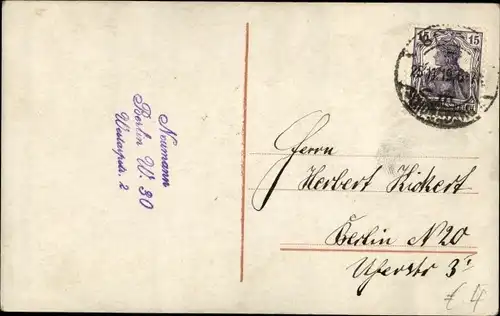 15 15
Neumann
Berlin W. 30
2
Herrn
Herbert Kickert
Berlin N 20
Uferstr 3
€ 4